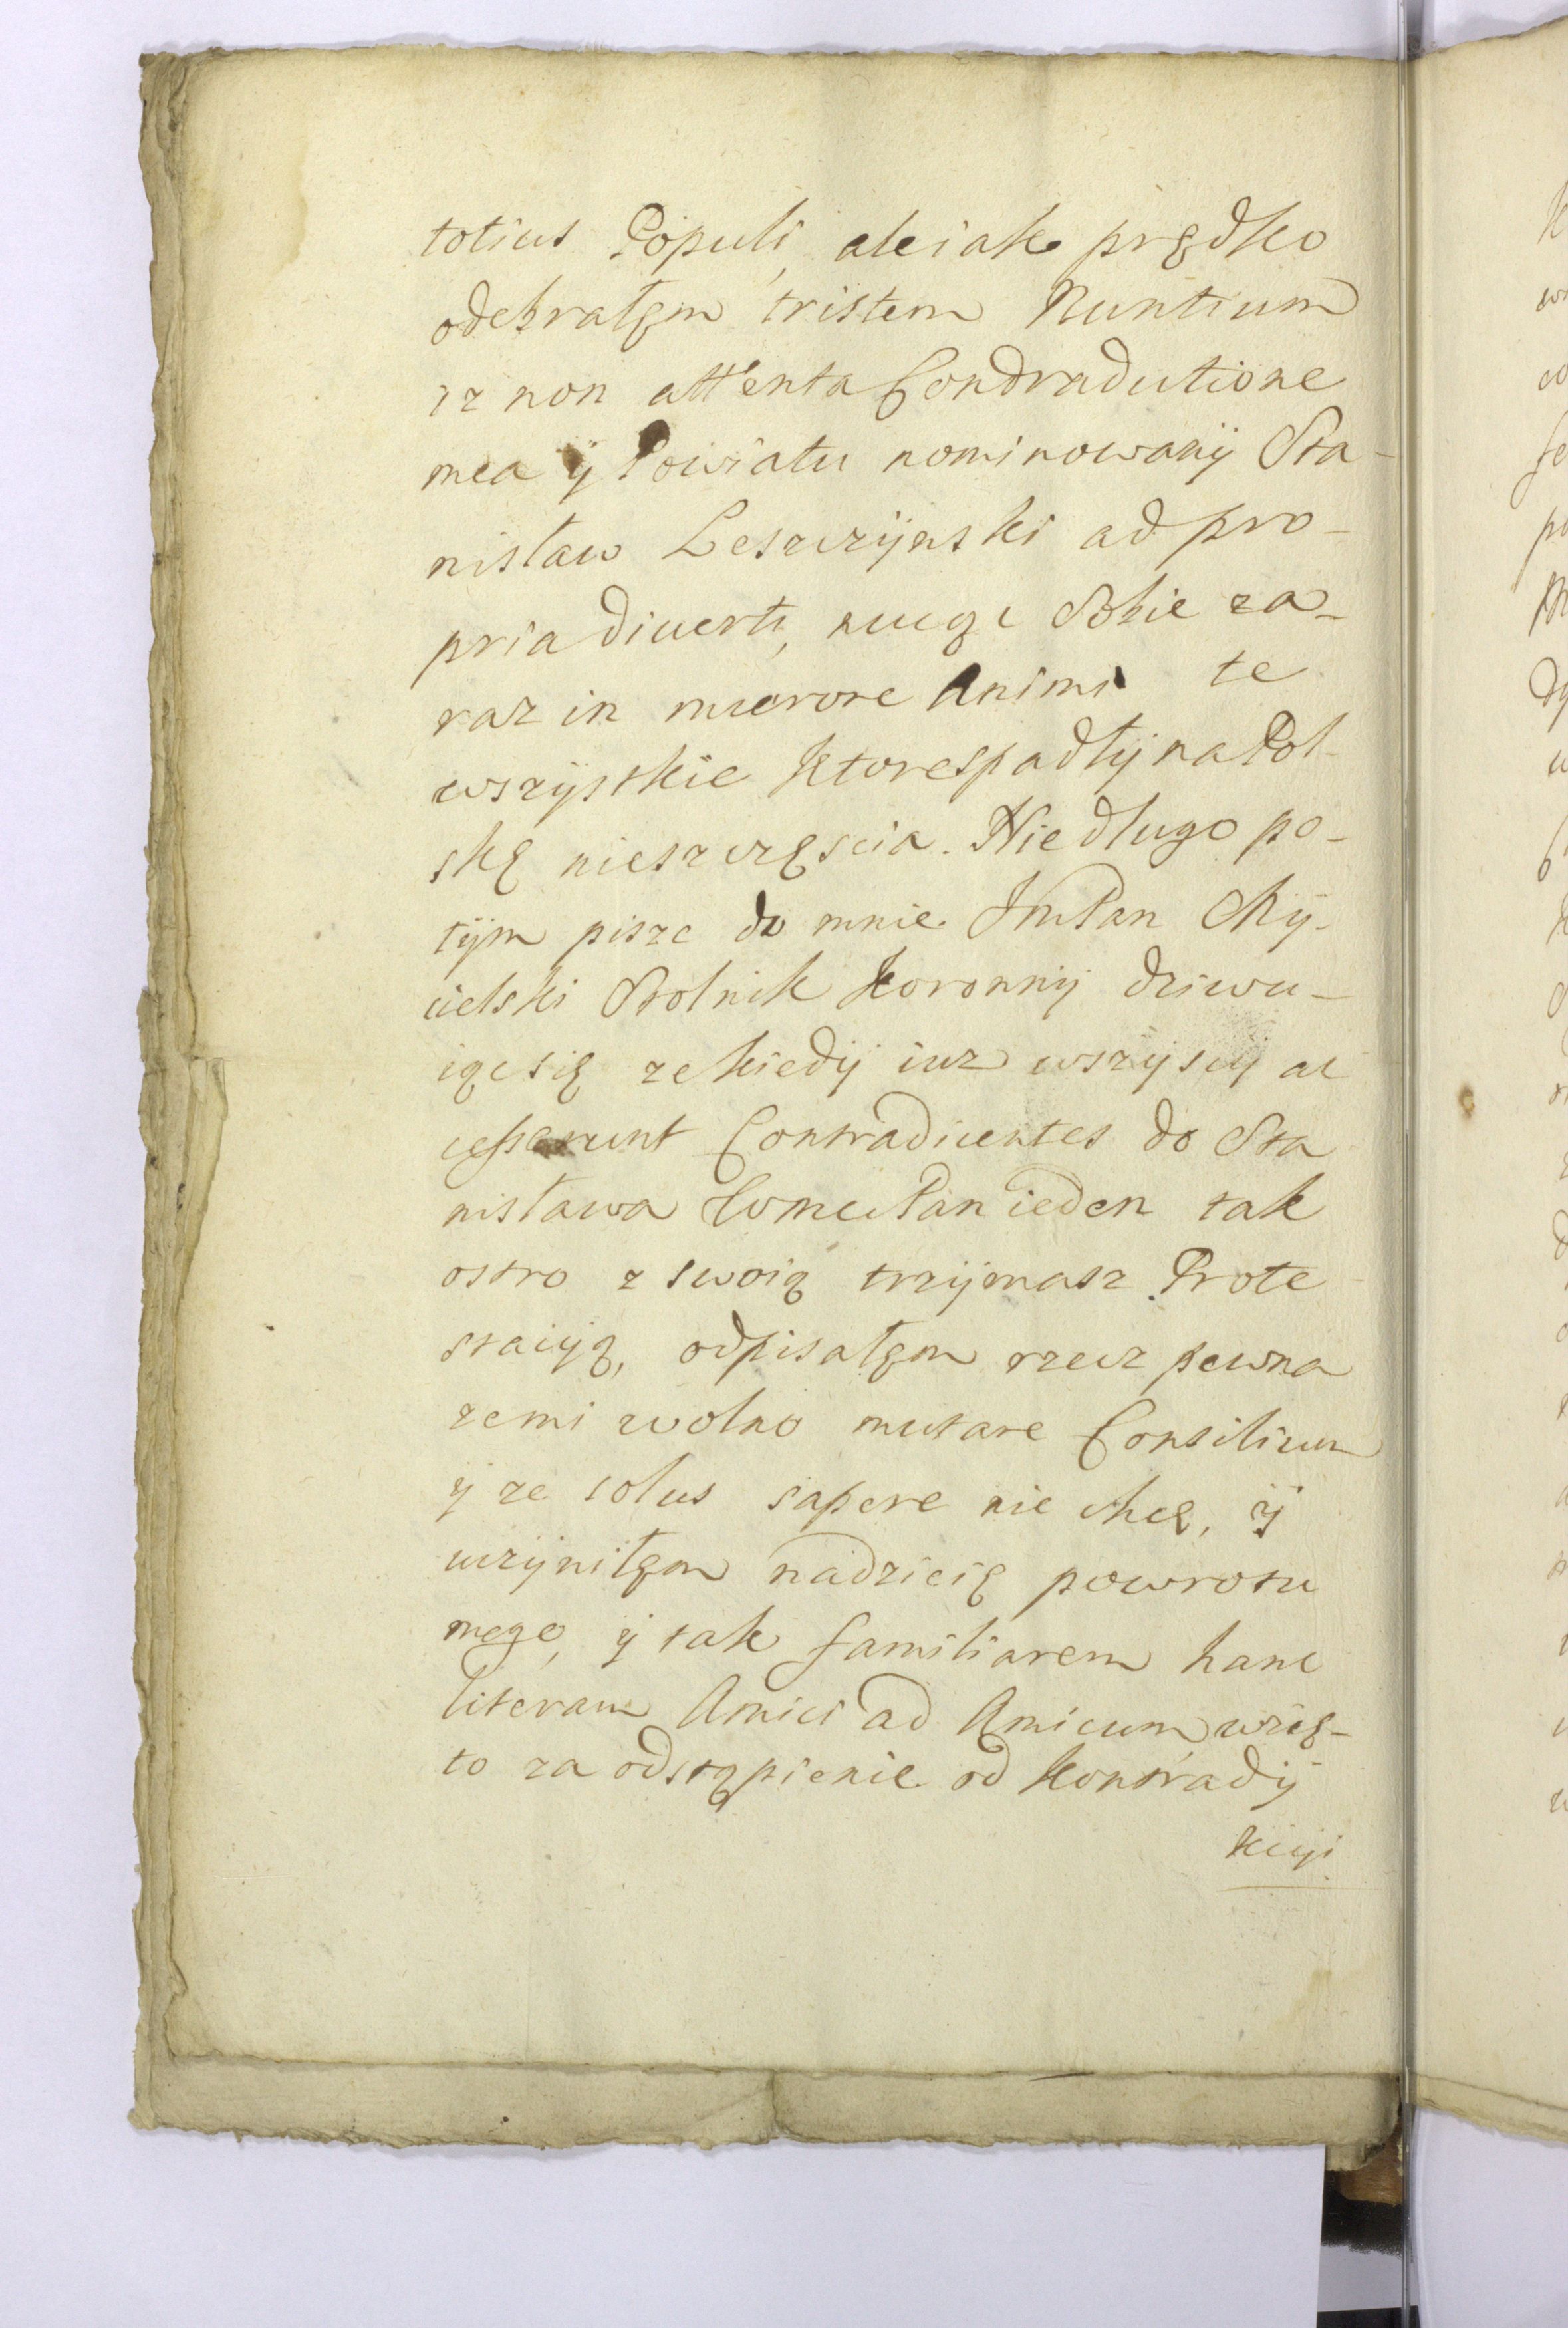 totius Populi, ale iak prędko
odebrałęm tristem Nuntium
iz non attenta Condradutione
mea ÿ Powiatu nominowanÿ Sta-
nisław Leszczÿnski ad pro-
pria diuerti, nucąc Sobie za-
raz in merore Animi te
wszÿstkie ktore spadłÿ na Pol-
skę nieszczęscia. Nie długo po-
tÿm pisze do mnie ImPan Mÿ-
cielski Stolnik Koronnÿ dziwu-
iąc się ze kiedÿ iuz wszÿscÿ ac
cesserunt Contradicentes do Sta
nisława Wmc Pan ieden tak
ostro z swoią trzÿmasz Prote-
stacÿą, odpisałęm rzecz pewna
ze mi wolno mutare Consilium
ÿ ze solus sapere nie chcę, ÿ
uczÿniłęm nadzieię powrotu
mego, ÿ tak familiarem hanc
literam Amici ad Amicum, wzię-
to za odstąpienie od Kontradÿ
kcÿi